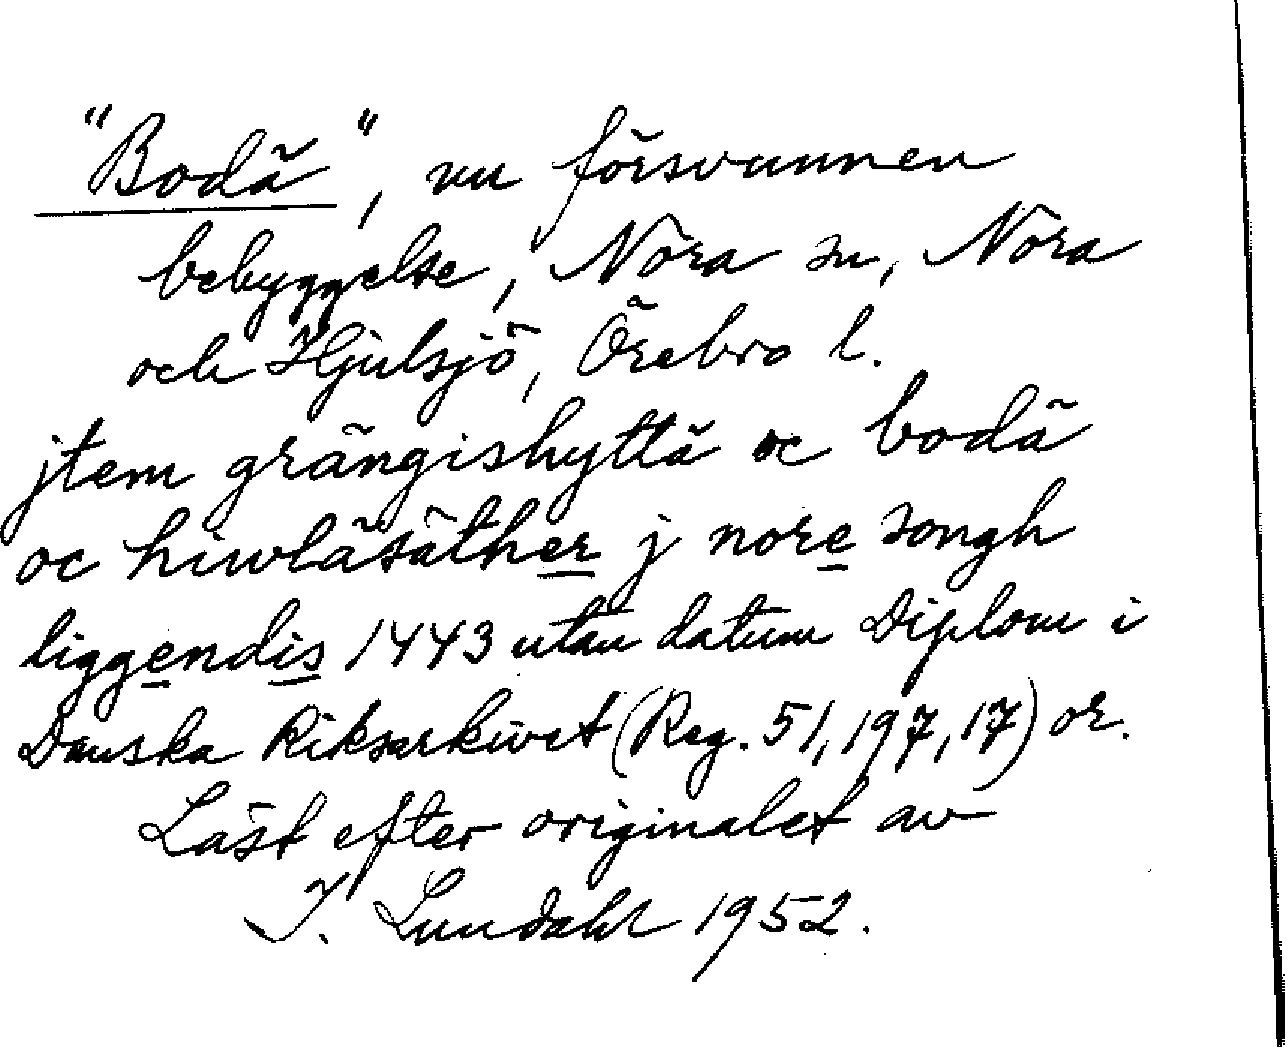 "Bodä", nu försvunnen
bebyggelse, Nora sn, Nora
och Hjulsjö, Örebro l.
jtem grängishyttä oc bodä
oc hiwläsäther j nore songh
liggendis 1443 utan datum Diplom i
Danska Riksarkivet (Reg. 51,197,17) or.
Läst efter originalet av
I. Lundahl 1952.